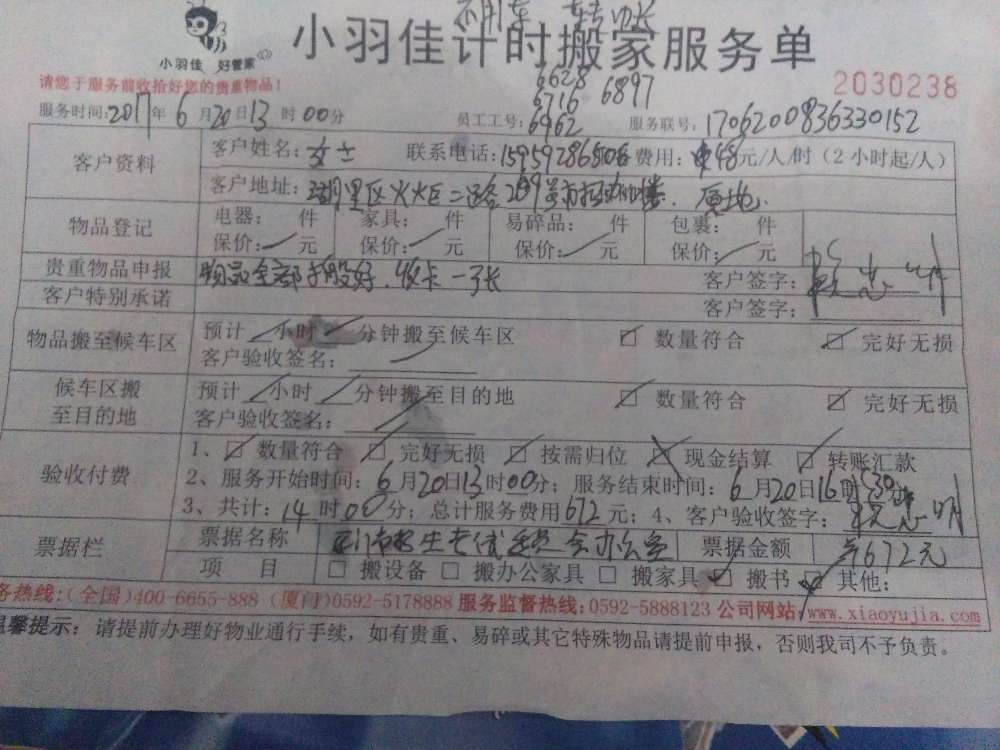 不用车 转账
小羽佳 好管家
小羽佳计时搬家服务单
请您于服务前收拾好您的贵重物品！
2030238
6628
6716 6897
服务时间:2017年6月20日13时00分 员工工号:6962 服务联号:1706200836330152
客户资料
客户姓名:女士 联系电话: 费用:48元/人/时（2小时起/人）
客户地址:湖里区火炬二路
物品登记
电器: 件 家具: 件 易碎品: 件 包裹: 件
保价: 元 保价: 元 保价: 元 保价: 元
贵重物品申报 物品全部搬好.收卡一张 客户签字:
客户特别承诺 客户签字:
物品搬至候车区
预计 小时 分钟搬至候车区 数量符合 完好无损
客户验收签名:
候车区搬至目的地
预计 小时 分钟搬至目的地 数量符合 完好无损
客户验收签名:
验收付费
1、数量符合 完好无损 按需归位 现金结算 转账汇款
2、服务开始时间:6月20日13时00分；服务结束时间:6月20日16时30分
3、共计:14时00分；总计服务费用672元；4、客户验收签字:
票据栏
票据名称 厦门市招生考试委员会办公室 票据金额 672元
项 目 搬设备 搬办公家具 搬家具 搬书 其他:
务热线:(全国)400-6655-888 (厦门)0592-5178888 服务监督热线:0592-5888123 公司网站:www.xiaoyujia.com
温馨提示: 请提前办理好物业通行手续，如有贵重、易碎或其它特殊物品请提前申报，否则我司不予负责。